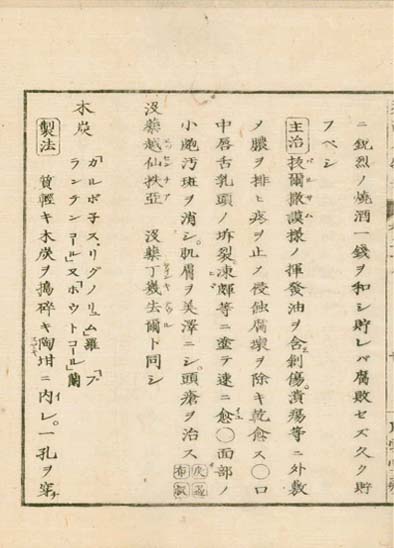 ニ鋭烈ノ焼酒一銭ヲ和シ貯レバ腐敗セズ久ク貯
フベシ
主治 抜爾撒謨様ノ揮発油ヲ含創傷。潰瘍等ニ外敷
ヲ膿ヲ排ヒ疼ヲ止メ侵蝕腐壊ヲ除キ乾愈ス〇口
中唇舌乳頭ノ坼裂凍瘃等ニ塗テ速ニ愈〇面部ノ
小皰汚斑ヲ消シ。肌膚ヲ美澤ニシ。頭瘡ヲ治ス
没薬越仙扶亞 没薬丁幾去爾ト同シ
木炭 「カルボ子ス、リグノリュム」羅 「プ
ランテンコール」又「ホウトコール」蘭
製法 質軽キ木炭ヲ搗碎キ陶坩ニ内レ。一孔ヲ穿